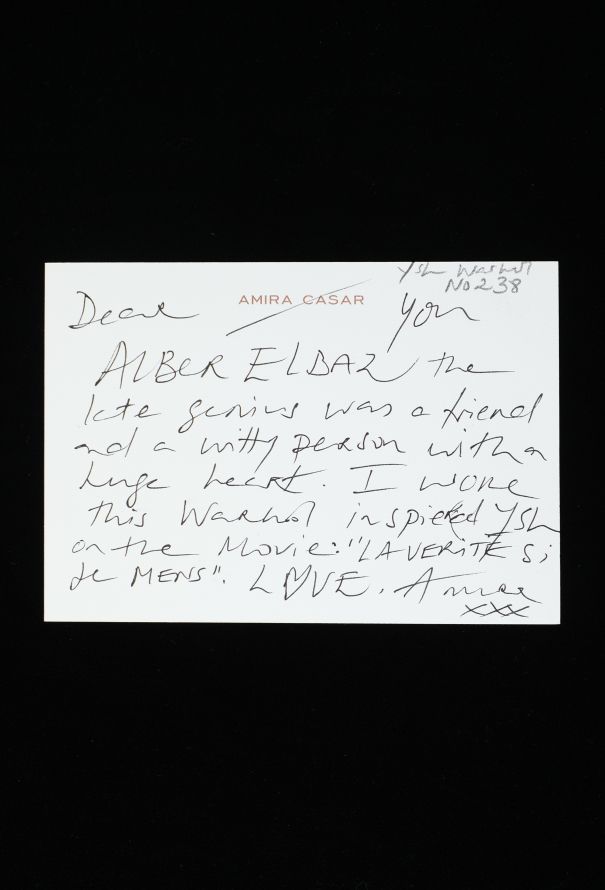 Ysl Warhol
No 238
AMIRA CASAR
Dear You
ALBER ELBAZ the
late genius was a friend
and a witty person with a
huge heart. I wore
this Warhol inspired Ysl
on the Movie: "LA VERITE Si
Je MENS". LOVE. Amira
xxx